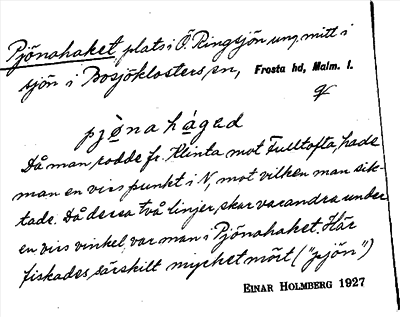 Pjönahaket, plats i Ö. Ringsjön ung. mitt i
sjön i Bosjöklosters sn, Frosta hd, Malm. l.
pjönahágad
Då man rodde fr. Klinta mot Fulltofta, hade
man en viss punkt i N, mot vilken man sik-
tade. Då dessa två linjer skar varandra under
en viss vinkel, var man i Pjönahaket. Här
fiskades särskilt mycket mört ("pjön")
EINAR HOLMBERG 1927